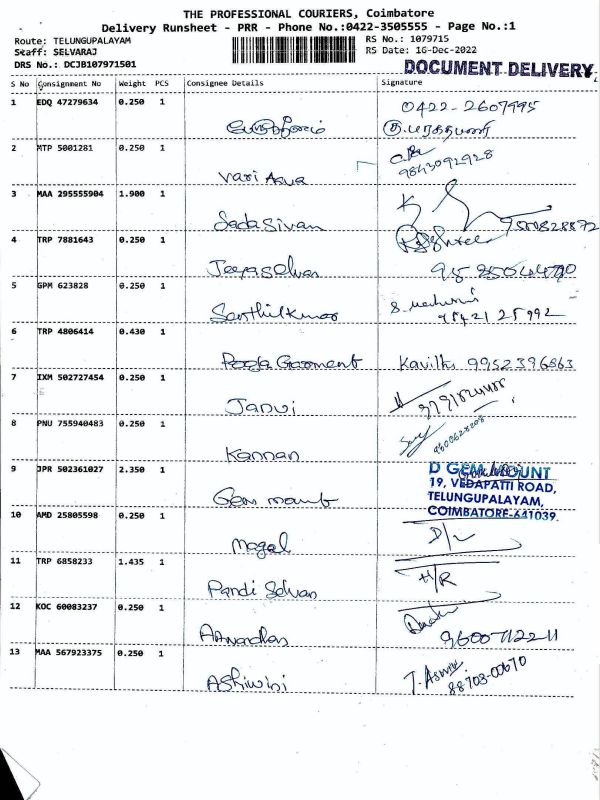 THE PROFESSIONAL COURIERS, Coimbatore
Delivery Runsheet - PRR - Phone No.:0422-3505555 - Page No.:1
Route: TELUNGUPALAYAM
RS No.: 1079715
Staff: SELVARAJ
RS Date: 16-Dec-2022
DRS No.: DCJB107971501
DOCUMENT DELIVERY
S No Consignment No Weight PCS Consignee Details Signature
1 EDQ 47279634 0.250 1
0422-2607995
2 MTP 5001281 0.250 1
Vari Asva 9843092928
3 MAA 295555904 1.900 1
Sadasivan 9500828872
4 TRP 7881643 0.250 1
Jeyaselvan
5 GPM 623828 0.250 1
Senthilkumar
6 TRP 4806414 0.430 1
Pooja Garment Kavitha 9952396863
7 IXM 502727454 0.250 1
Janvi
8 PNU 755940483 0.250 1
Kannan
9 JPR 502361027 2.350 1
D GEM MOUNT
19, VEDAPATTI ROAD,
TELUNGUPALAYAM,
COIMBATORE-641039.
Gem mount
10 AMD 25805598 0.250 1
Magal D/L
11 TRP 6858233 1.435 1
Pandi Selvan H/R
12 KOC 60083237 0.250 1
9600712211
13 MAA 567923375 0.250 1
Ashwini 88703-00670